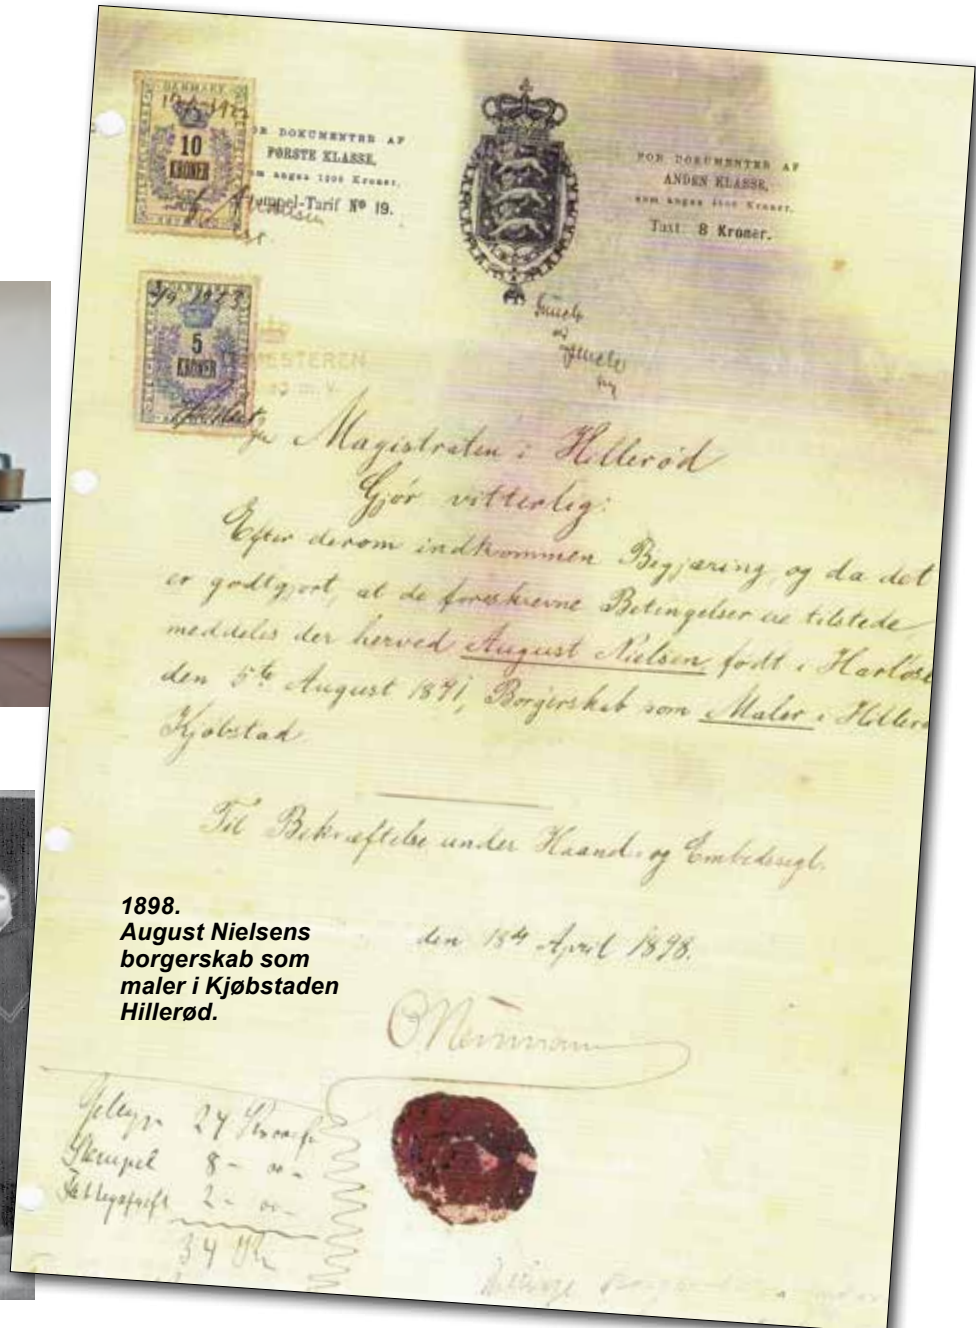 DANMARK
10
KRONER
FOR DOKUMENTER AF
FØRSTE KLASSE,
som angaa 1200 Kroner.
Stempel-Tarif No 19.
FOR DOKUMENTER AF
ANDEN KLASSE,
som angaa Kroner.
Taxt 8 Kroner.
1923
5
KRONER
MESTEREN
m. v.
Magistraten i Hillerød
Gjør vitterlig:
Efter derom indkommen Begjæring, og da det
er godtgjort, at de foreskrevne Betingelser ere tilstede,
meddeles der herved August Nielsen, født i Harløse
den 5te August 1871, Borgerskab som Maler i Hillerø
Kjøbstad
Til Bekræftelse under Haand og Embedssegl.
den 18de April 1898.
1898.
August Nielsens
borgerskab som
maler i Kjøbstaden
Hillerød.
24
Stempel 8 - 00 -
2 - 00 -
34 Kr